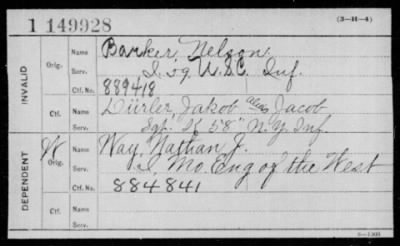 1 149928 (3-H-4)
INVALID
Orig. Name Barker, Nelson
Serv. I. 59. U.S.C. Inf.
Ctf. No. 889418
Ctf. Name Dürler, Jakob alias Jacob
Serv. Sgt. K 58" N.Y. Inf.
DEPENDENT
Orig. Name Way, Nathan J.
Serv. I, Mo. Eng of the West
Ctf. No. 884841
Ctf. Name
Serv.